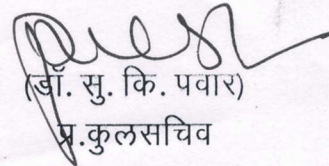 (डॉ. सु. कि. पवार)
प्र.कुलसचिव